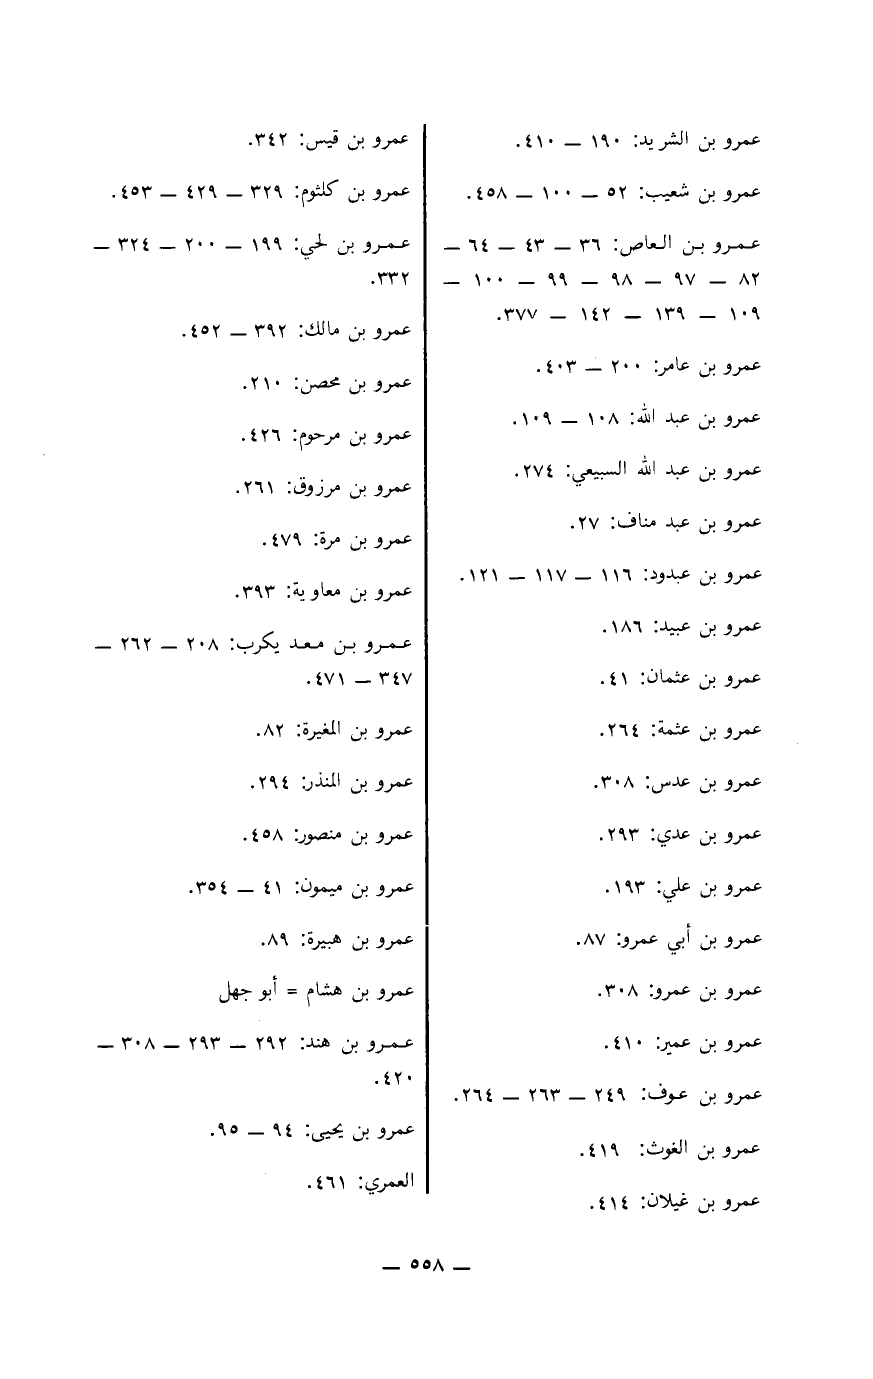 عمرو بن الشريد: ١٩٠ — ٤١٠.
عمرو بن شعيب: ٥٢ — ١٠٠ — ٤٥٨.
عمرو بن العاص: ٣٦ — ٤٣ — ٦٤ —
٨٢ — ٩٧ — ٩٨ — ٩٩ — ١٠٠ —
١٠٩ — ١٣٩ — ١٤٢ — ٣٧٧.
عمرو بن عامر: ٢٠٠ — ٤٠٣.
عمرو بن عبد الله: ١٠٨ — ١٠٩.
عمرو بن عبد الله السبيعي: ٢٧٤.
عمرو بن عبد مناف: ٢٧.
عمرو بن عبدود: ١١٦ — ١١٧ — ١٢١.
عمرو بن عبيد: ١٨٦.
عمرو بن عثمان: ٤١.
عمرو بن عثمة: ٢٦٤.
عمرو بن عدس: ٣٠٨.
عمرو بن عدي: ٢٩٣.
عمرو بن علي: ١٩٣.
عمرو بن أبي عمرو: ٨٧.
عمرو بن عمرو: ٣٠٨.
عمرو بن عمير: ٤١٠.
عمرو بن عوف: ٢٤٩ — ٢٦٣ — ٢٦٤.
عمرو بن الغوث: ٤١٩.
عمرو بن غيلان: ٤١٤.
عمرو بن قيس: ٣٤٢.
عمرو بن كلثوم: ٣٢٩ — ٤٢٩ — ٤٥٣.
عمرو بن لحي: ١٩٩ — ٢٠٠ — ٣٢٤ —
٣٣٢.
عمرو بن مالك: ٣٩٢ — ٤٥٢.
عمرو بن محصن: ٢١٠.
عمرو بن مرحوم: ٤٢٦.
عمرو بن مرزوق: ٢٦١.
عمرو بن مرة: ٤٧٩.
عمرو بن معاوية: ٣٩٣.
عمرو بن معد يكرب: ٢٠٨ — ٢٦٢ —
٣٤٧ — ٤٧١.
عمرو بن المغيرة: ٨٢.
عمرو بن المنذر: ٢٩٤.
عمرو بن منصور: ٤٥٨.
عمرو بن ميمون: ٤١ — ٣٥٤.
عمرو بن هبيرة: ٨٩.
عمرو بن هشام = أبو جهل
عمرو بن هند: ٢٩٢ — ٢٩٣ — ٣٠٨ —
٤٢٠.
عمرو بن يحيى: ٩٤ — ٩٥.
العمري: ٤٦١.
— ٥٥٨ —